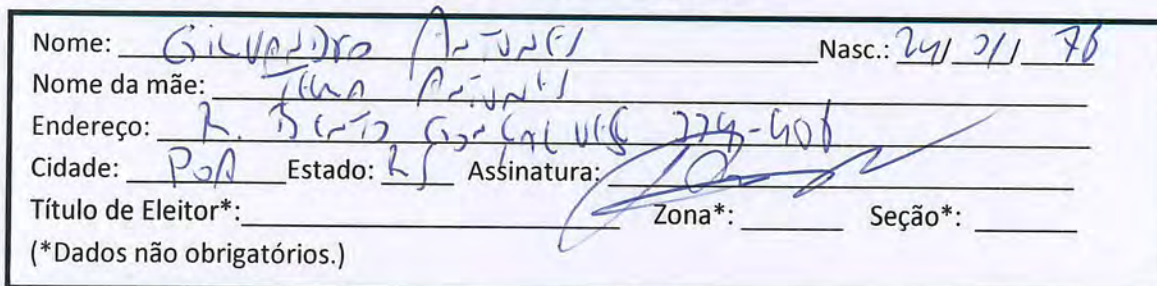 Nome: GILVANDRO ANTUNES Nasc.: 24/ 
Nome da mãe: ANTUNES
Endereço: R. BENTO GONÇALVES
Cidade: POA Estado: RS Assinatura:
Título de Eleitor*: Zona*: Seção*:
(*Dados não obrigatórios.)